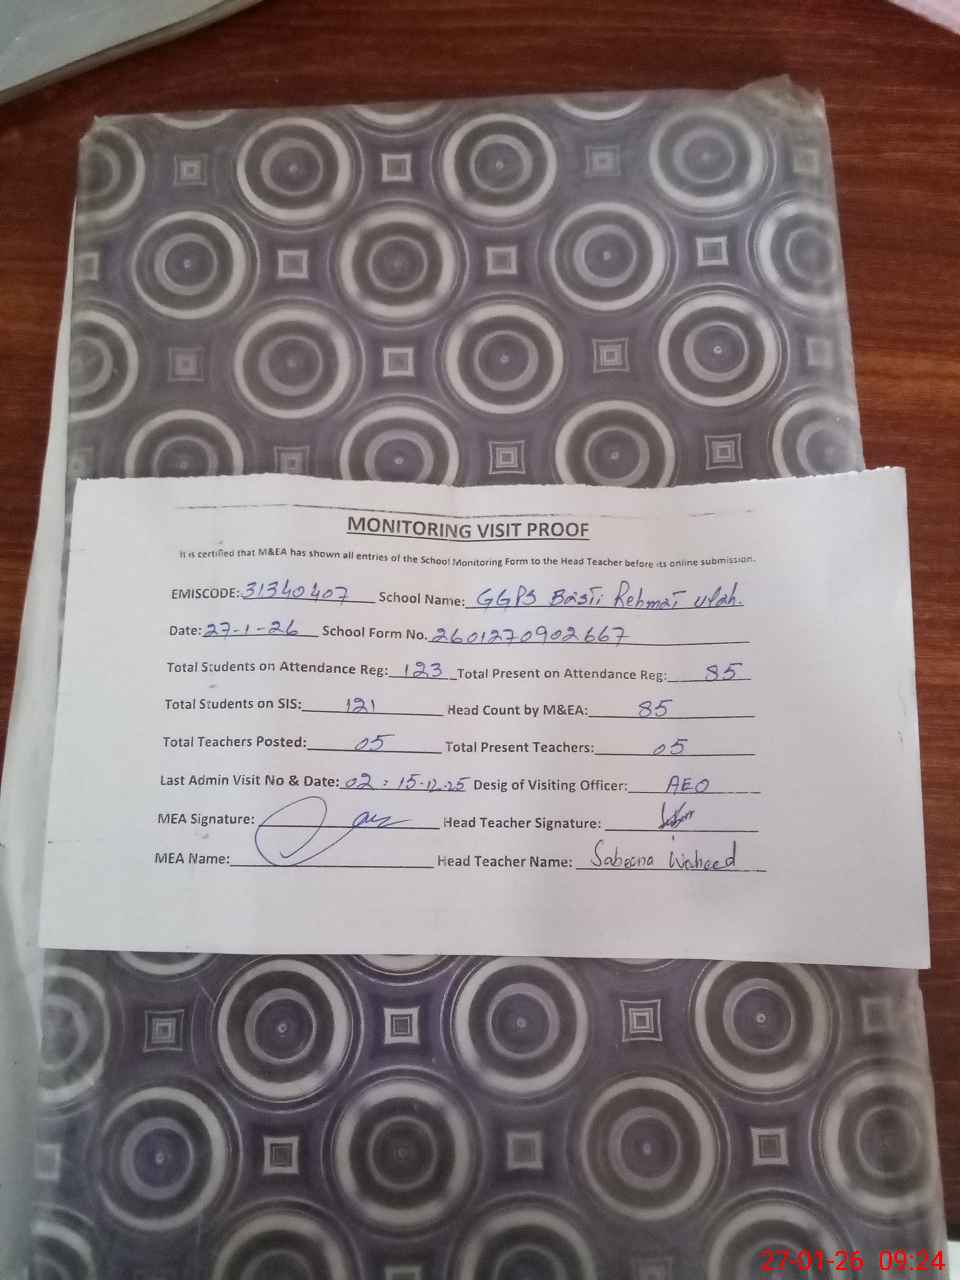 MONITORING VISIT PROOF
It is certified that M&EA has shown all entries of the School Monitoring Form to the Head Teacher before its online submission.
EMISCODE: 31340407 School Name: GGPS Basti Rehmat Ullah.
Date: 27-1-26 School Form No. 2601270902667
Total Students on Attendance Reg: 123 Total Present on Attendance Reg: 85
Total Students on SIS: 121 Head Count by M&EA: 85
Total Teachers Posted: 05 Total Present Teachers: 05
Last Admin Visit No & Date: 02 : 15-12-25 Desig of Visiting Officer: AEO
MEA Signature: Head Teacher Signature:
MEA Name: Head Teacher Name: Sabeena Waheed
27-01-26 09:24